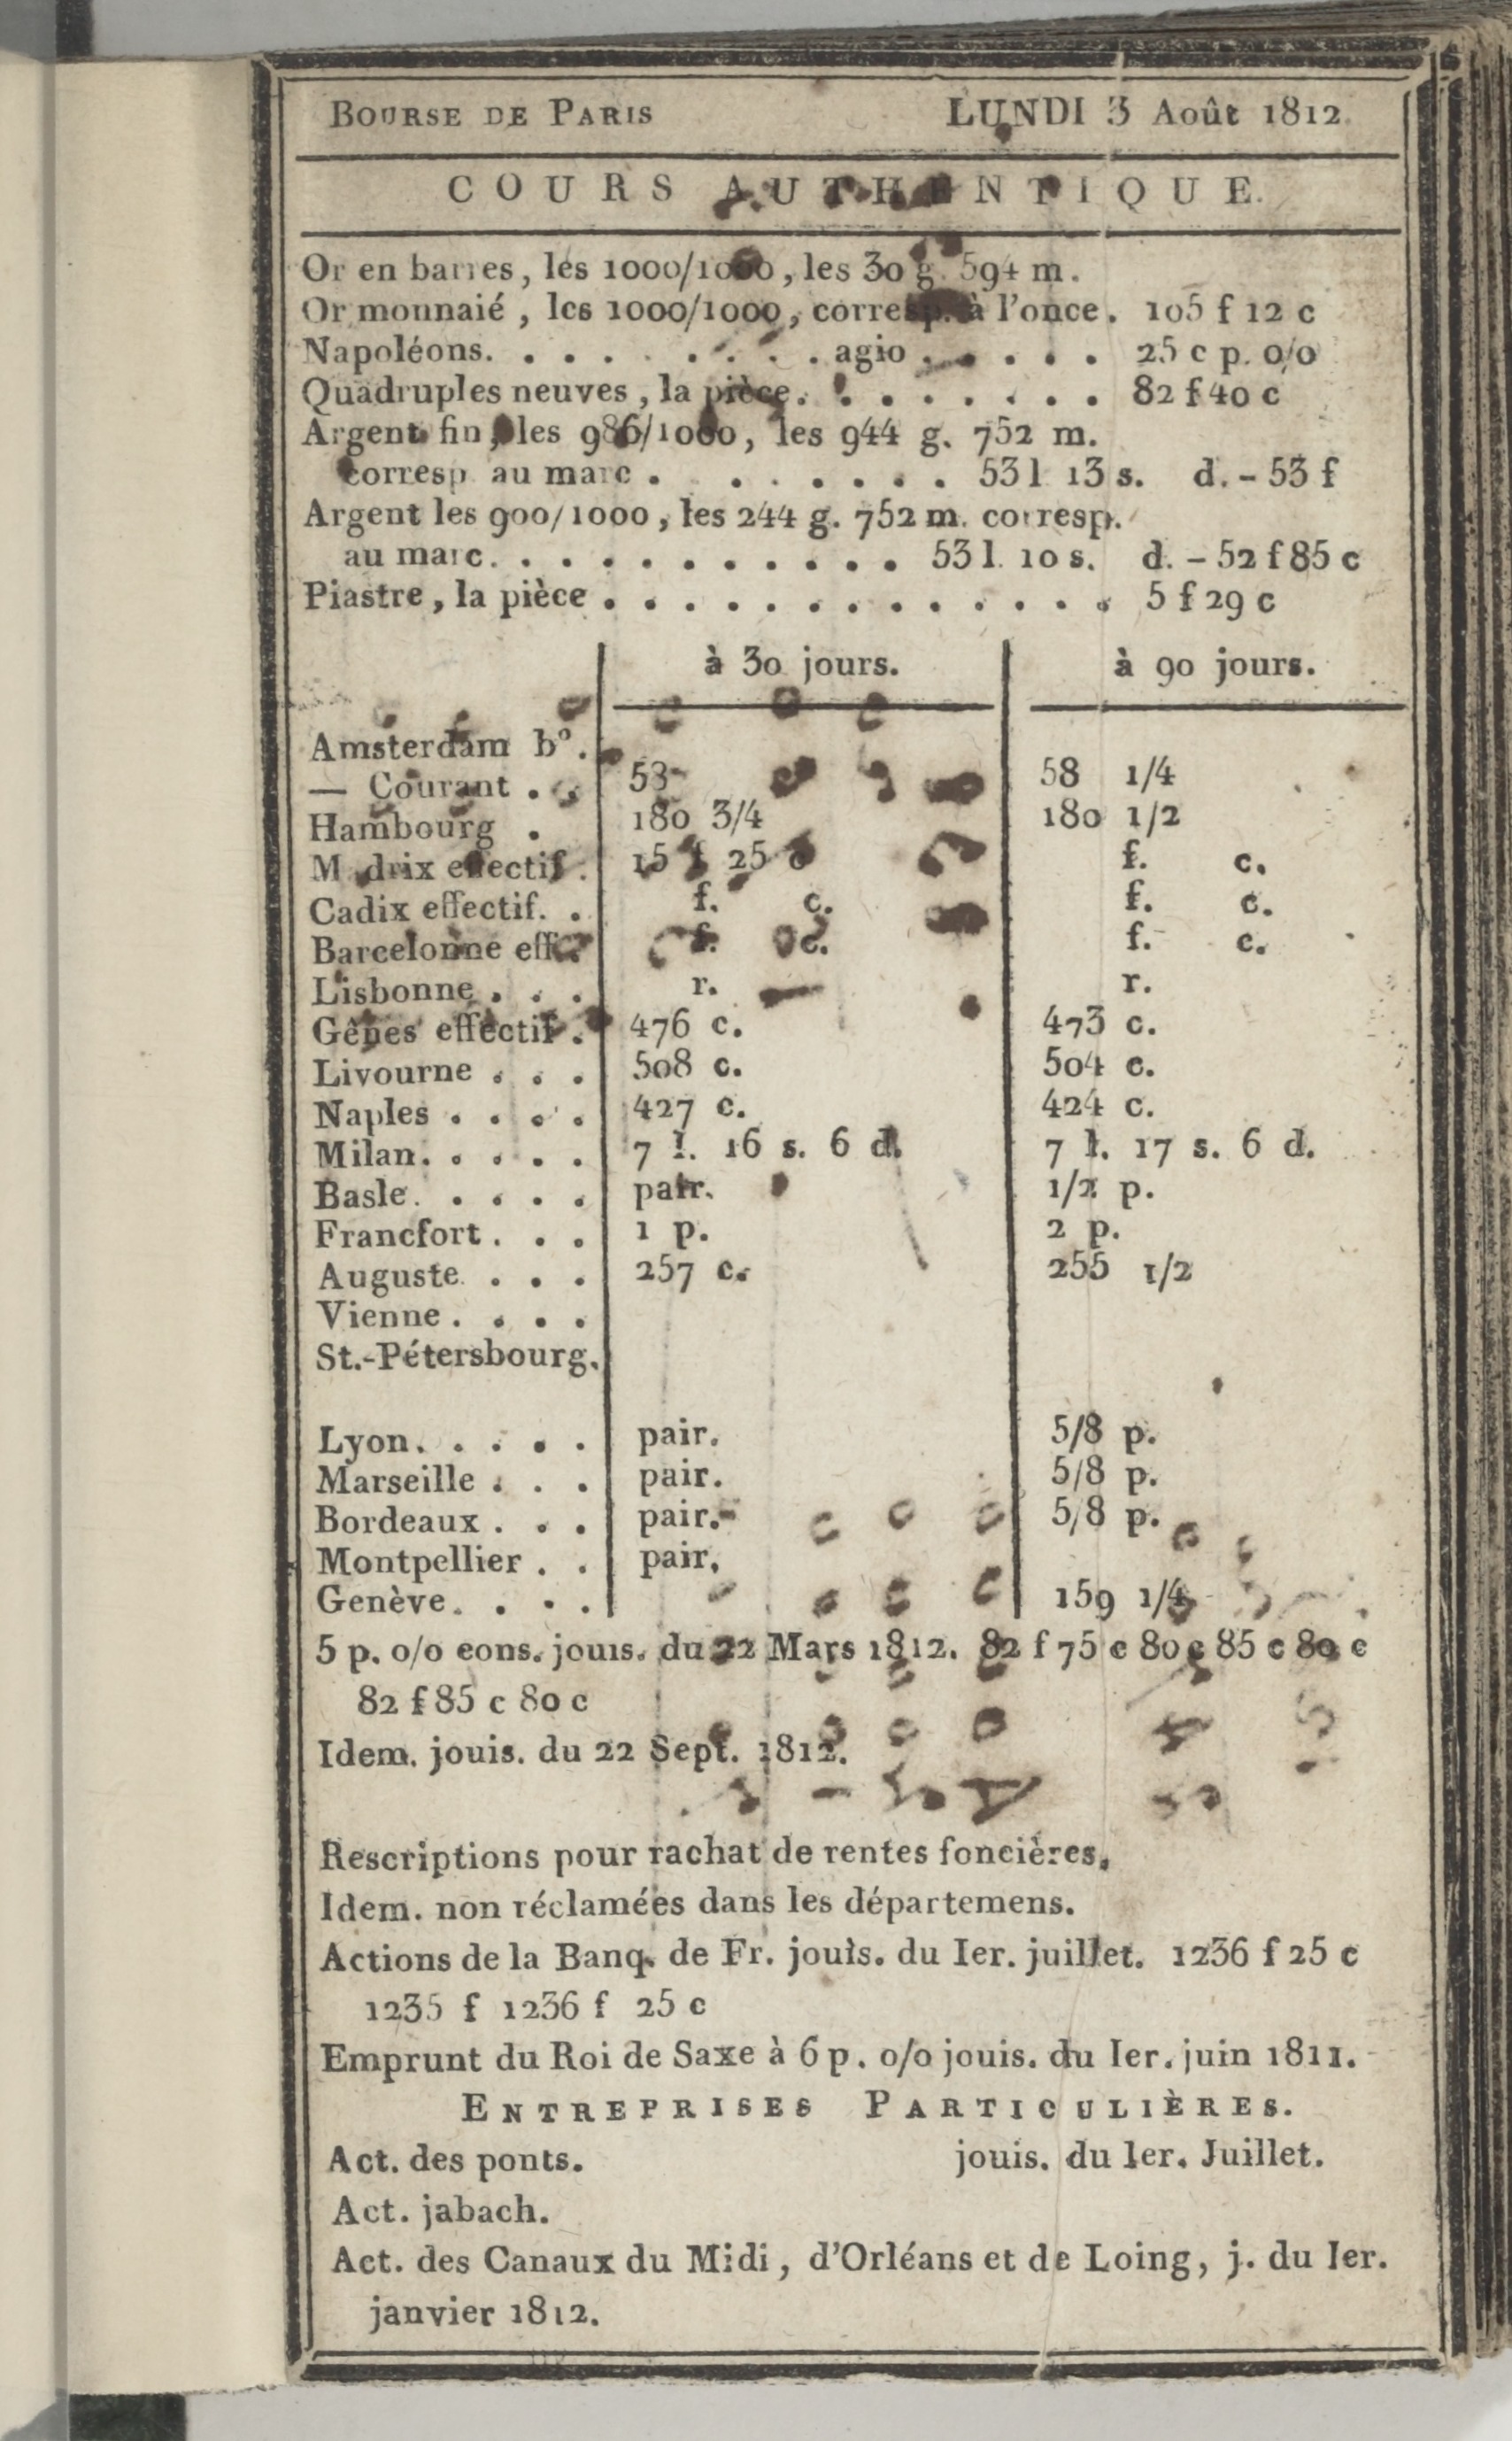 BOURSE DE PARIS LUNDI 3 Août 1812.
COURS AUTHENTIQUE.
Or en barres, les 1000/1000, les 30 g. 594 m.
Or monnaié, les 1000/1000, corresp. à l'once. 105 f 12 c
Napoléons. . . . . . . . . agio . . . . . 25 c p. o/o
Quadruples neuves, la pièce. . . . . . . . . 82 f 40 c
Argent fin, les 986/1000, les 944 g. 752 m.
corresp. au marc . . . . . . . 53 l 13 s. d. - 53 f
Argent les 900/1000, les 244 g. 752 m. corresp.
au marc. . . . . . . . . . . 53 l. 10 s. d. - 52 f 85 c
Piastre, la pièce . . . . . . . . . . . . . 5 f 29 c
à 30 jours. à 90 jours.
Amsterdam b°.
— Courant . . 58 58 1/4
Hambourg . 180 3/4 180 1/2
Madrix effectif . 15 f 25 c f. c.
Cadix effectif. . f. c. f. c.
Barcelonne eff. . f. c. f. c.
Lisbonne . . . r. r.
Gênes effectif . 476 c. 473 c.
Livourne . . . 508 c. 504 c.
Naples . . . . 427 c. 424 c.
Milan. . . . . 7 l. 16 s. 6 d. 7 l. 17 s. 6 d.
Basle. . . . . pair. 1/2 p.
Francfort . . . 1 p. 2 p.
Auguste. . . . 257 c. 255 1/2
Vienne . . . .
St.-Pétersbourg.
Lyon. . . . . pair. 5/8 p.
Marseille . . . pair. 5/8 p.
Bordeaux . . . pair. 5/8 p.
Montpellier . . pair.
Genève. . . . 159 1/4
5 p. o/o cons. jouis. du 22 Mars 1812. 82 f 75 c 80 c 85 c 80 c
82 f 85 c 80 c
Idem. jouis. du 22 Sept. 1812.
Rescriptions pour rachat de rentes foncières.
Idem. non réclamées dans les départemens.
Actions de la Banq. de Fr. jouis. du Ier. juillet. 1236 f 25 c
1235 f 1236 f 25 c
Emprunt du Roi de Saxe à 6 p. o/o jouis. du Ier. juin 1811.
ENTREPRISES PARTICULIÈRES.
Act. des ponts. jouis. du Ier. Juillet.
Act. jabach.
Act. des Canaux du Midi, d'Orléans et de Loing, j. du Ier.
janvier 1812.